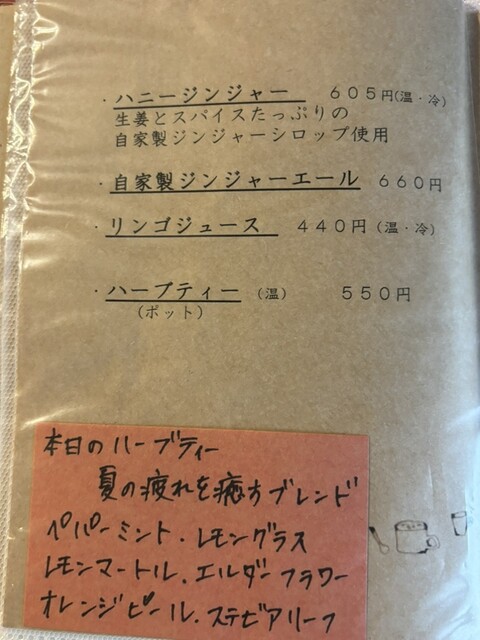 ・ハニージンジャー　６０５円(温・冷)
生姜とスパイスたっぷりの
自家製ジンジャーシロップ使用
・自家製ジンジャーエール　６６０円
・リンゴジュース　４４０円（温・冷）
・ハーブティー（温）　５５０円
（ポット）
本日のハーブティー
夏の疲れを癒すブレンド
ペパーミント・レモングラス
レモンマートル・エルダーフラワー
オレンジピール・ステビアリーフ